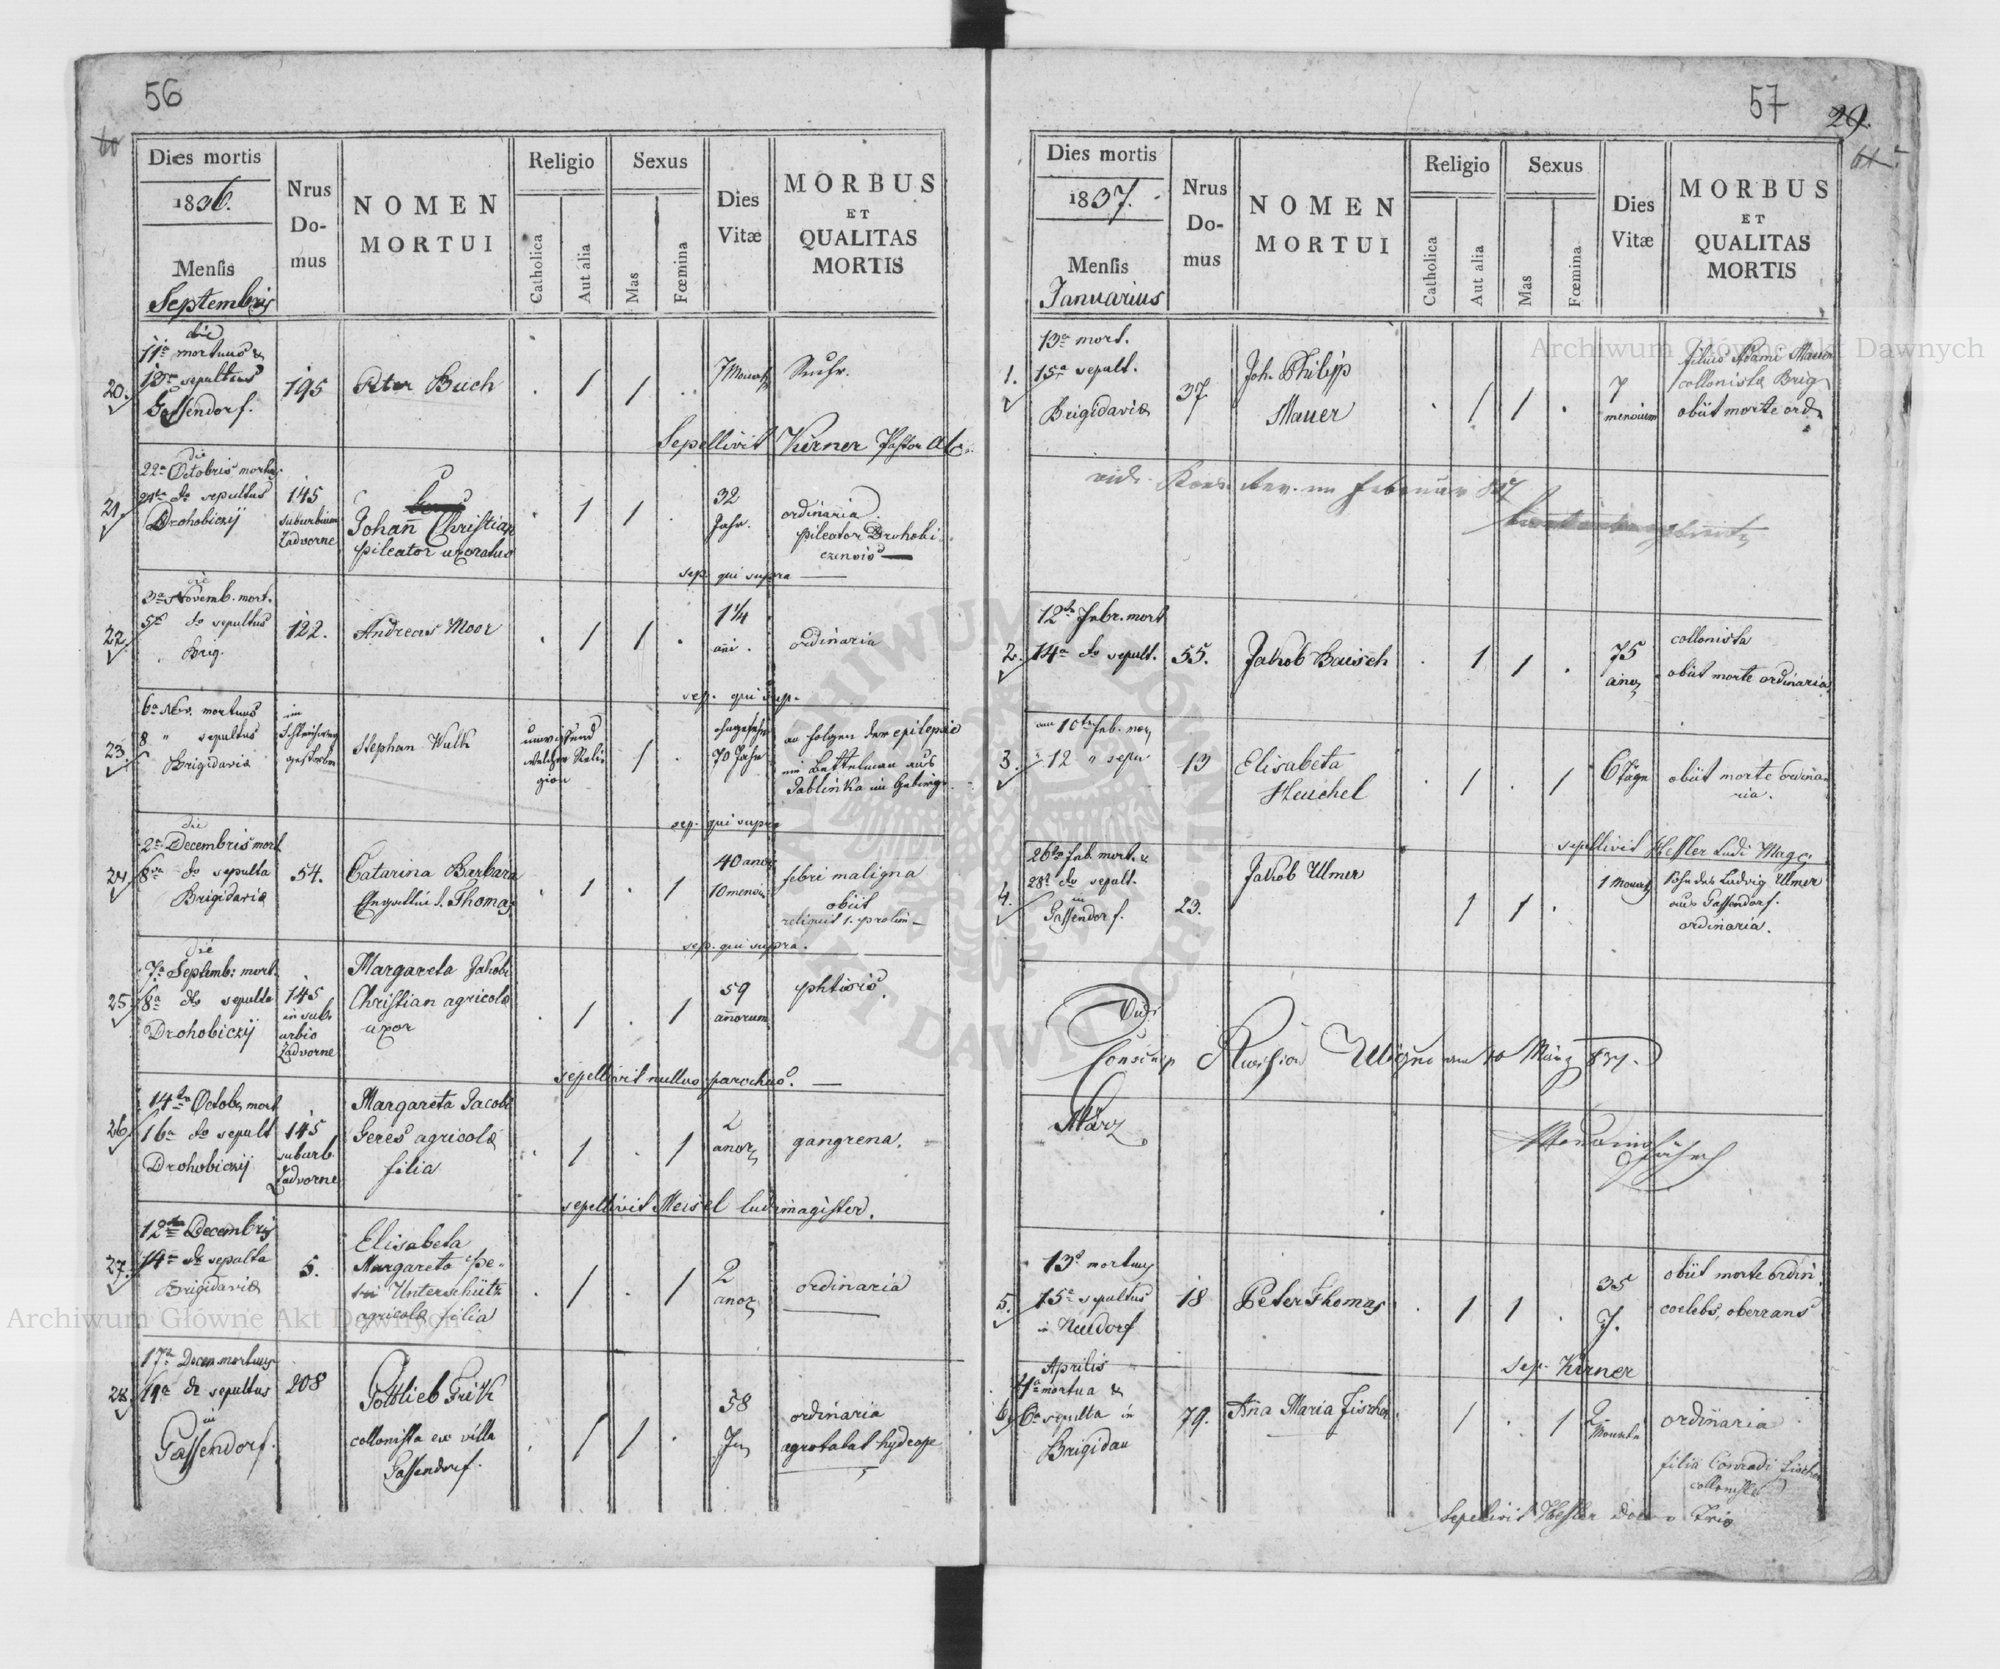 56
Dies mortis
1836.
Menſis
Septembris
Nrus
Do-
mus
NOMEN
MORTUI
Religio
Catholica
Aut alia
Sexus
Mas
Fœmina
Dies
Vitæ
MORBUS
ET
QUALITAS
MORTIS
20.
die
11a mortuus &
13a sepultus
Gassendorf.
195
Peter Buch
7 Monath
Ruhr.
Sepellivit Kirner Pastor
21.
die
22a Octobris mortuus
24ta do sepultus
Drohobiczij
145
suburbium
Zadworne
Johann Christian
pileator uxoratus
32
Jahr.
ordinaria
pileator Drohobi
czensis
sep. qui supra
22.
die
3a Novemb. mort.
5ta do sepultus
Brig.
122.
Andreas Moor
1 1/4
ani.
ordinaria
sep. qui sup.
23.
6a Nov. mortuus
8 " sepultus
Brigidavia
im
gestorben
Stephan Wulk
unwissend
welcher Reli
gion
ohngefehr
70 Jahr
an folgen der epilepsie
ein Bettelman aus
Jablinka im Gebirge
sep. qui supra
24
die
2a Decembris mort
6ta do sepulta
Brigidavia
54.
Catarina Barbara
Thomas
40 anor
10 mensiu
febri maligna
obiit
reliquit 1. prolem
sep. qui supra.
25
die
7a Septemb: mort.
8a do sepulta
Drohobiczij
145
in sub
urbio
Zadworne
Margareta Jakobi
Christian agricolæ
uxor
59
annorum
phtisis
sepellivit nullus parochus.
26
14ta Octob. mort
16a do sepult
Drohobiczij
145
suburb
Zadworne
Margareta Jacobi
Geres agricolæ
filia
2
anor
gangrena.
sepellivit Meisel ludimagister.
27.
12ta Decembris
14a do sepulta
Brigidavia
5.
Elisabeta
Margareta Pe-
tri Unterschütz
agricolæ filia
2
anor
ordinaria
28
17a Decem mortuus
19a do sepultus
in
Gassendorf.
208
Gottlieb Frik
collonista ex villa
Gassendorf.
58
ordinaria
agrotabat hydrope
57
29.
Dies mortis
1837.
Menſis
Januarius
Nrus
Do-
mus
NOMEN
MORTUI
Religio
Catholica
Aut alia
Sexus
Mas
Fœmina
Dies
Vitæ
MORBUS
ET
QUALITAS
MORTIS
1.
13a mort.
15a sepult.
Brigidavia
37
Joh. Philipp
Mauer
7
mensium
filius Adami Mauer
collonistæ Brig
obiit morte ord
Februar 837
2.
12ta Febr. mort
14a do sepult.
55.
Jakob Bausch
75
anor
collonista
obiit morte ordinaria
3.
am 10ten feb. mor
12 " sepu
13
Elisabeta
Heuchel
6 Tage
obiit morte ordina
ria.
sepellivit Hessler Ludi Mag:
4.
26ta feb. mort. &
28a do sepult.
in
Gassendorf.
23.
Jakob Ulmer
1 Monath
Sohn des Ludwig Ulmer
aus Gassendorf.
ordinaria.
Vidi
Conscrip Revision am 10 März 837.
März
5.
13a mortuus
15a sepultus
in Neudorf
18
Peter Thomas
35
J.
obiit morte ordin.
coelebs, oberrans
sep. Kirner
6
Aprilis
4a mortua &
6a sepulta in
Brigidau
79.
Ana Maria Fischer
2
Monath
ordinaria
filia Conradi Fischer
collonistæ
Sepellivit Hessler
Archiwum Główne Akt Dawnych
Archiwum Główne Akt Dawnych
ARCHIWUM GŁÓWNE AKT DAWNYCH